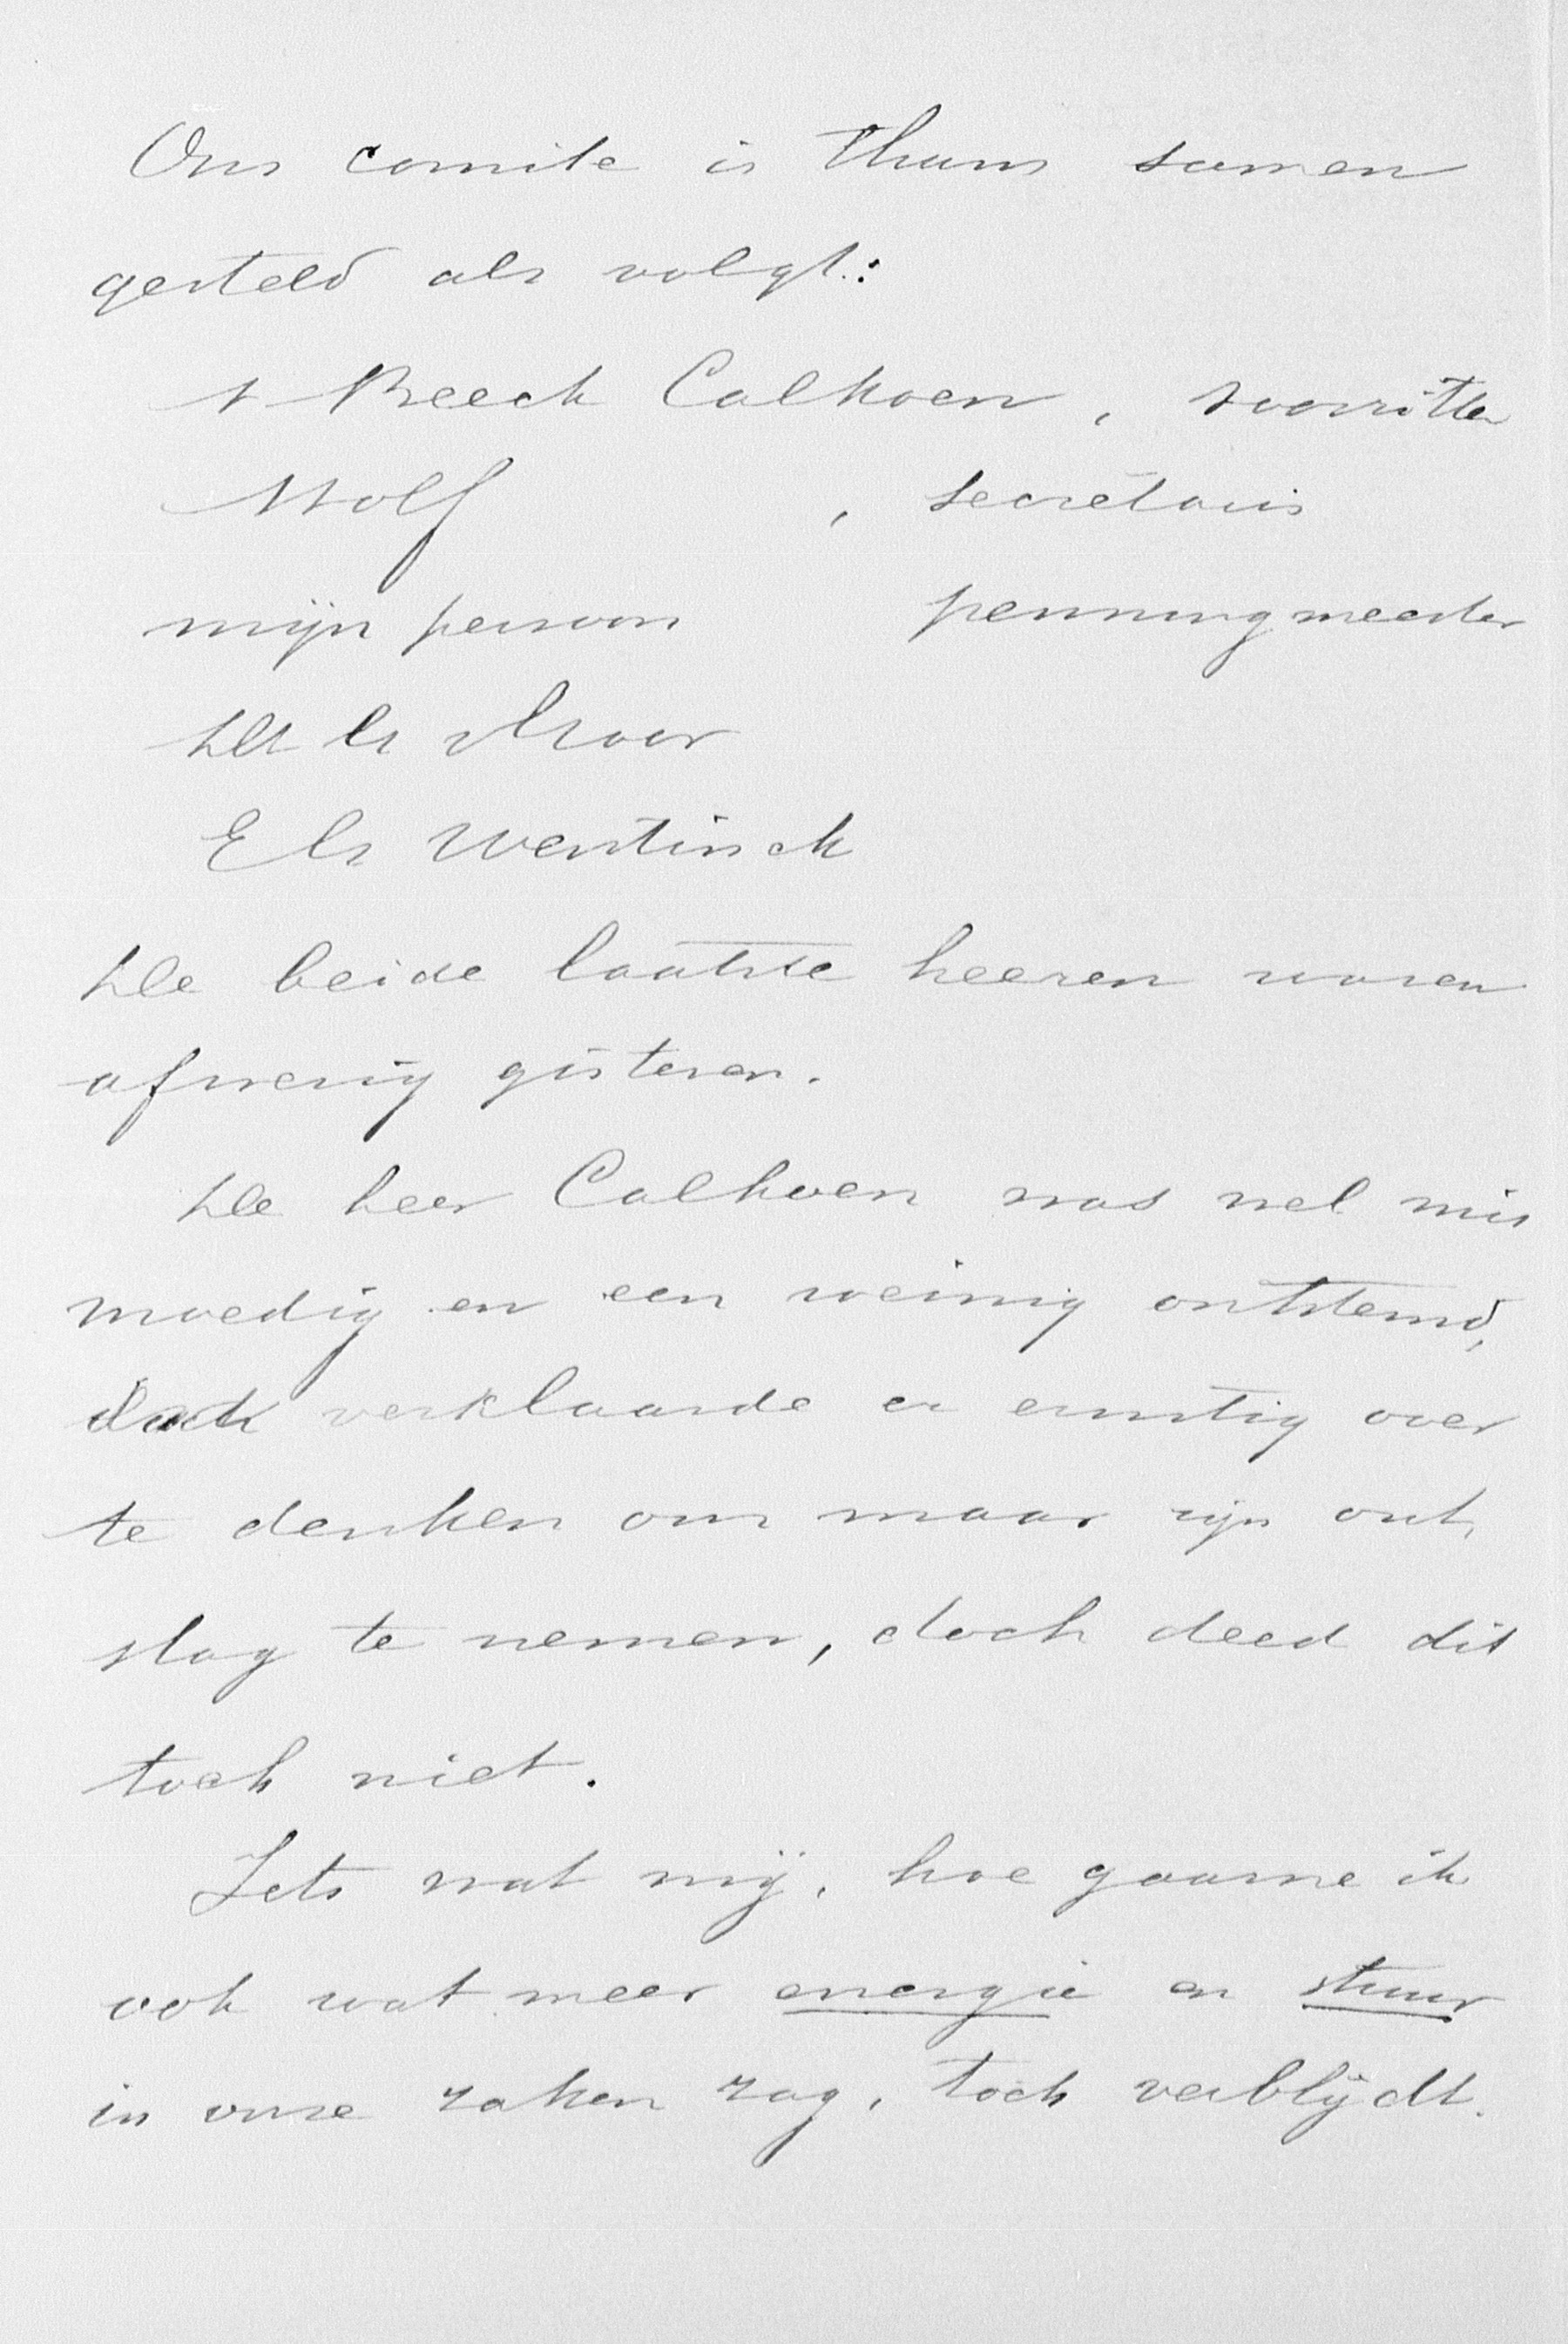 Ons comite is thans samen
gesteld als volgt:
v Beeck Calkoen, voorzitter
Wolf, secretaris
mijn persoon penningmeester
Wentinck
De beide laatste heeren waren
afwezig gisteren.
De heer Calkoen was wel mis
moedig en een weinig ontstemd,
doch verklaarde er ernstig over
te denken om maar zijn ont,
slag te nemen, doch deed dit
toch niet.
Iets wat mij, hoe gaarne ik
ook wat meer energie en stuur
in onze zaken zag, toch verblijdt.